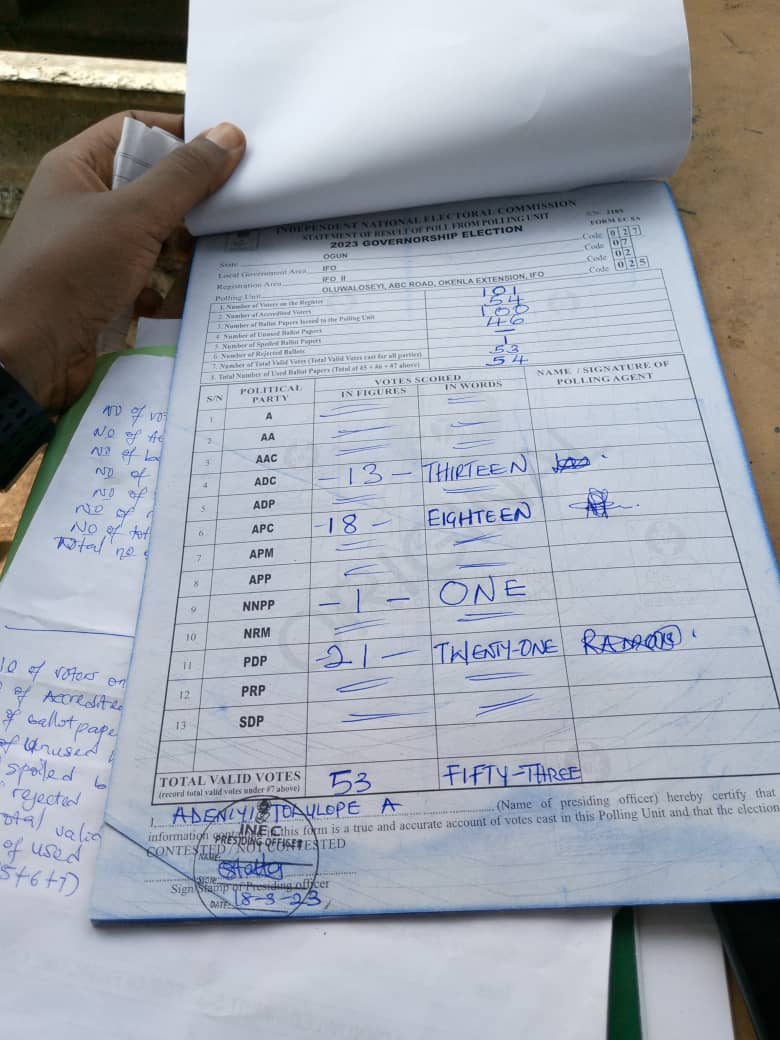 INDEPENDENT NATIONAL ELECTORAL COMMISSION
STATEMENT OF RESULT OF POLL FROM POLLING UNIT
2023 GOVERNORSHIP ELECTION
S/N: 3105
FORM EC 8A
State OGUN Code 027
Local Government Area IFO Code 07
Registration Area IFO II Code 02
Polling Unit OLUWALOSEYI, ABC ROAD, OKENLA EXTENSION, IFO Code 025
1. Number of Voters on the Register 101
2. Number of Accredited Voters 54
3. Number of Ballot Papers Issued to the Polling Unit 100
4. Number of Unused Ballot Papers 46
5. Number of Spoiled Ballot Papers —
6. Number of Rejected Ballots 1
7. Number of Total Valid Votes (Total Valid Votes cast for all parties) 53
8. Total Number of Used Ballot Papers (Total of #5 + #6 + #7 above) 54
S/N POLITICAL PARTY VOTES SCORED NAME / SIGNATURE OF POLLING AGENT
IN FIGURES IN WORDS
1 A
2 AA
3 AAC
4 ADC -13- THIRTEEN
5 ADP
6 APC -18- EIGHTEEN
7 APM
8 APP
9 NNPP -1- ONE
10 NRM
11 PDP -21- TWENTY-ONE
12 PRP
13 SDP
TOTAL VALID VOTES 53 FIFTY-THREE
(record total valid votes under #7 above)
I, ADENIYI TOPULOPE A (Name of presiding officer) hereby certify that
information contained in this form is a true and accurate account of votes cast in this Polling Unit and that the election
CONTESTED / NOT CONTESTED
INEC
PRESIDING OFFICER
NAME:
SIGN:
Sign/Stamp of Presiding officer
DATE: 18-3-23
NO of
NO of
NO of
NO of
NO of
NO of
NO of
Total no
of voters on
of Accredited
of ballot pape
of unused
spoiled
rejected
total valid
of used
5+6+7)